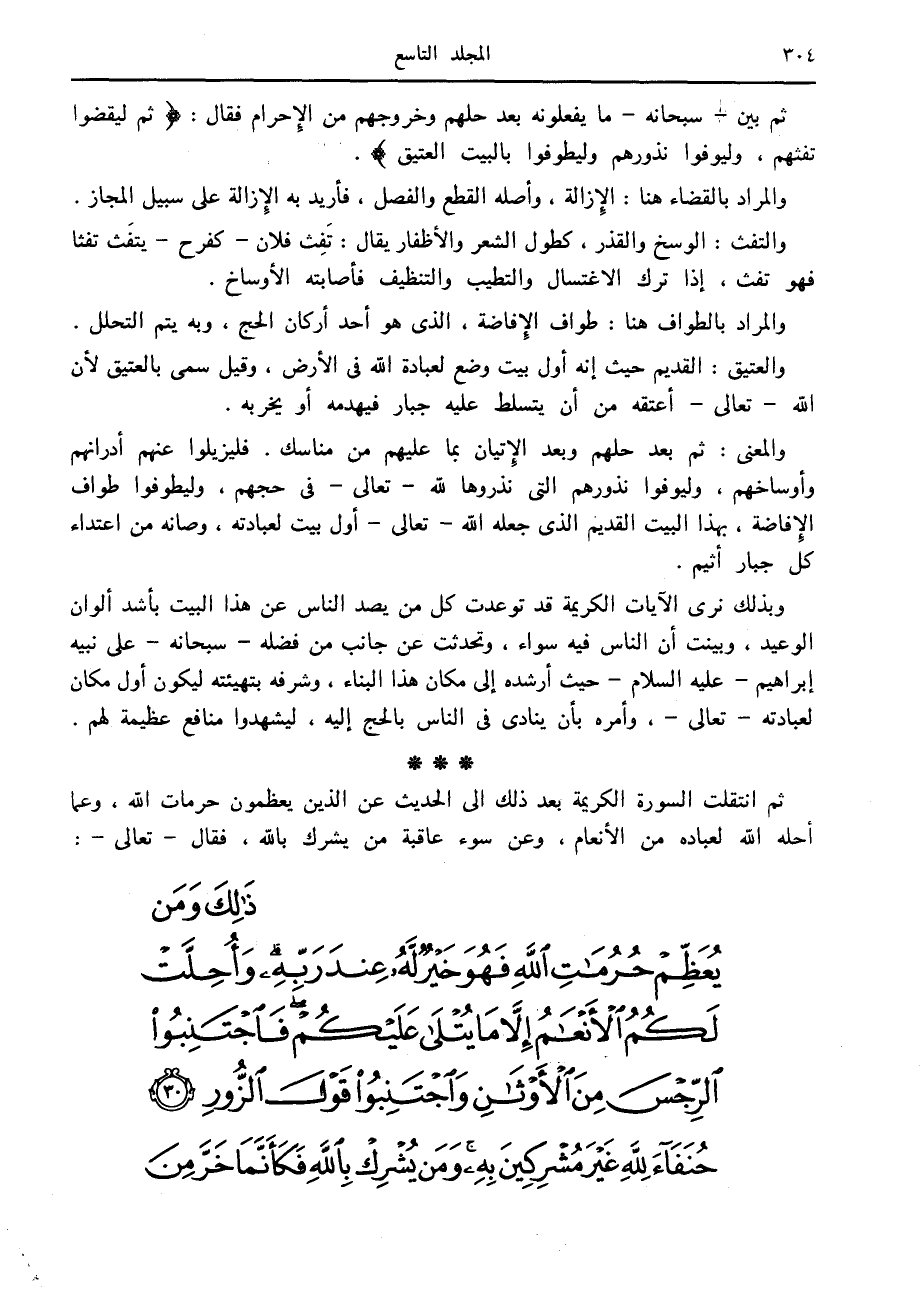 ٣٠٤ المجلد التاسع
ثم بين - سبحانه - ما يفعلونه بعد حلهم وخروجهم من الإحرام فقال : ﴿ ثم ليقضوا
تفثهم ، وليوفوا نذورهم وليطوفوا بالبيت العتيق ﴾ .
والمراد بالقضاء هنا : الإزالة ، وأصله القطع والفصل ، فأريد به الإزالة على سبيل المجاز .
والتفث : الوسخ والقذر ، كطول الشعر والأظفار يقال : تَفِث فلان - كفرح - يتفَث تفثا
فهو تفث ، إذا ترك الاغتسال والتطيب والتنظيف فأصابته الأوساخ .
والمراد بالطواف هنا : طواف الإفاضة ، الذى هو أحد أركان الحج ، وبه يتم التحلل .
والعتيق : القديم حيث إنه أول بيت وضع لعبادة الله فى الأرض ، وقيل سمى بالعتيق لأن
الله - تعالى - أعتقه من أن يتسلط عليه جبار فيهدمه أو يخربه .
والمعنى : ثم بعد حلهم وبعد الإتيان بما عليهم من مناسك . فليزيلوا عنهم أدرانهم
وأوساخهم ، وليوفوا نذورهم التى نذروها لله - تعالى - فى حجهم ، وليطوفوا طواف
الإفاضة ، بهذا البيت القديم الذى جعله الله - تعالى - أول بيت لعبادته ، وصانه من اعتداء
كل جبار أثيم .
وبذلك نرى الآيات الكريمة قد توعدت كل من يصد الناس عن هذا البيت بأشد ألوان
الوعيد ، وبينت أن الناس فيه سواء ، وتحدثت عن جانب من فضله - سبحانه - على نبيه
إبراهيم - عليه السلام - حيث أرشده إلى مكان هذا البناء ، وشرفه بتهيئته ليكون أول مكان
لعبادته - تعالى - ، وأمره بأن ينادى فى الناس بالحج إليه ، ليشهدوا منافع عظيمة لهم .
* * *
ثم انتقلت السورة الكريمة بعد ذلك الى الحديث عن الذين يعظمون حرمات الله ، وعما
أحله الله لعباده من الأنعام ، وعن سوء عاقبة من يشرك بالله ، فقال - تعالى - :
ذَٰلِكَ وَمَن
يُعَظِّمْ حُرُمَٰتِ ٱللَّهِ فَهُوَ خَيْرٌ لَّهُۥ عِندَ رَبِّهِۦ ۗ وَأُحِلَّتْ
لَكُمُ ٱلْأَنْعَٰمُ إِلَّا مَا يُتْلَىٰ عَلَيْكُمْ ۖ فَٱجْتَنِبُوا۟
ٱلرِّجْسَ مِنَ ٱلْأَوْثَٰنِ وَٱجْتَنِبُوا۟ قَوْلَ ٱلزُّورِ ٣٠
حُنَفَآءَ لِلَّهِ غَيْرَ مُشْرِكِينَ بِهِۦ ۚ وَمَن يُشْرِكْ بِٱللَّهِ فَكَأَنَّمَا خَرَّ مِنَ